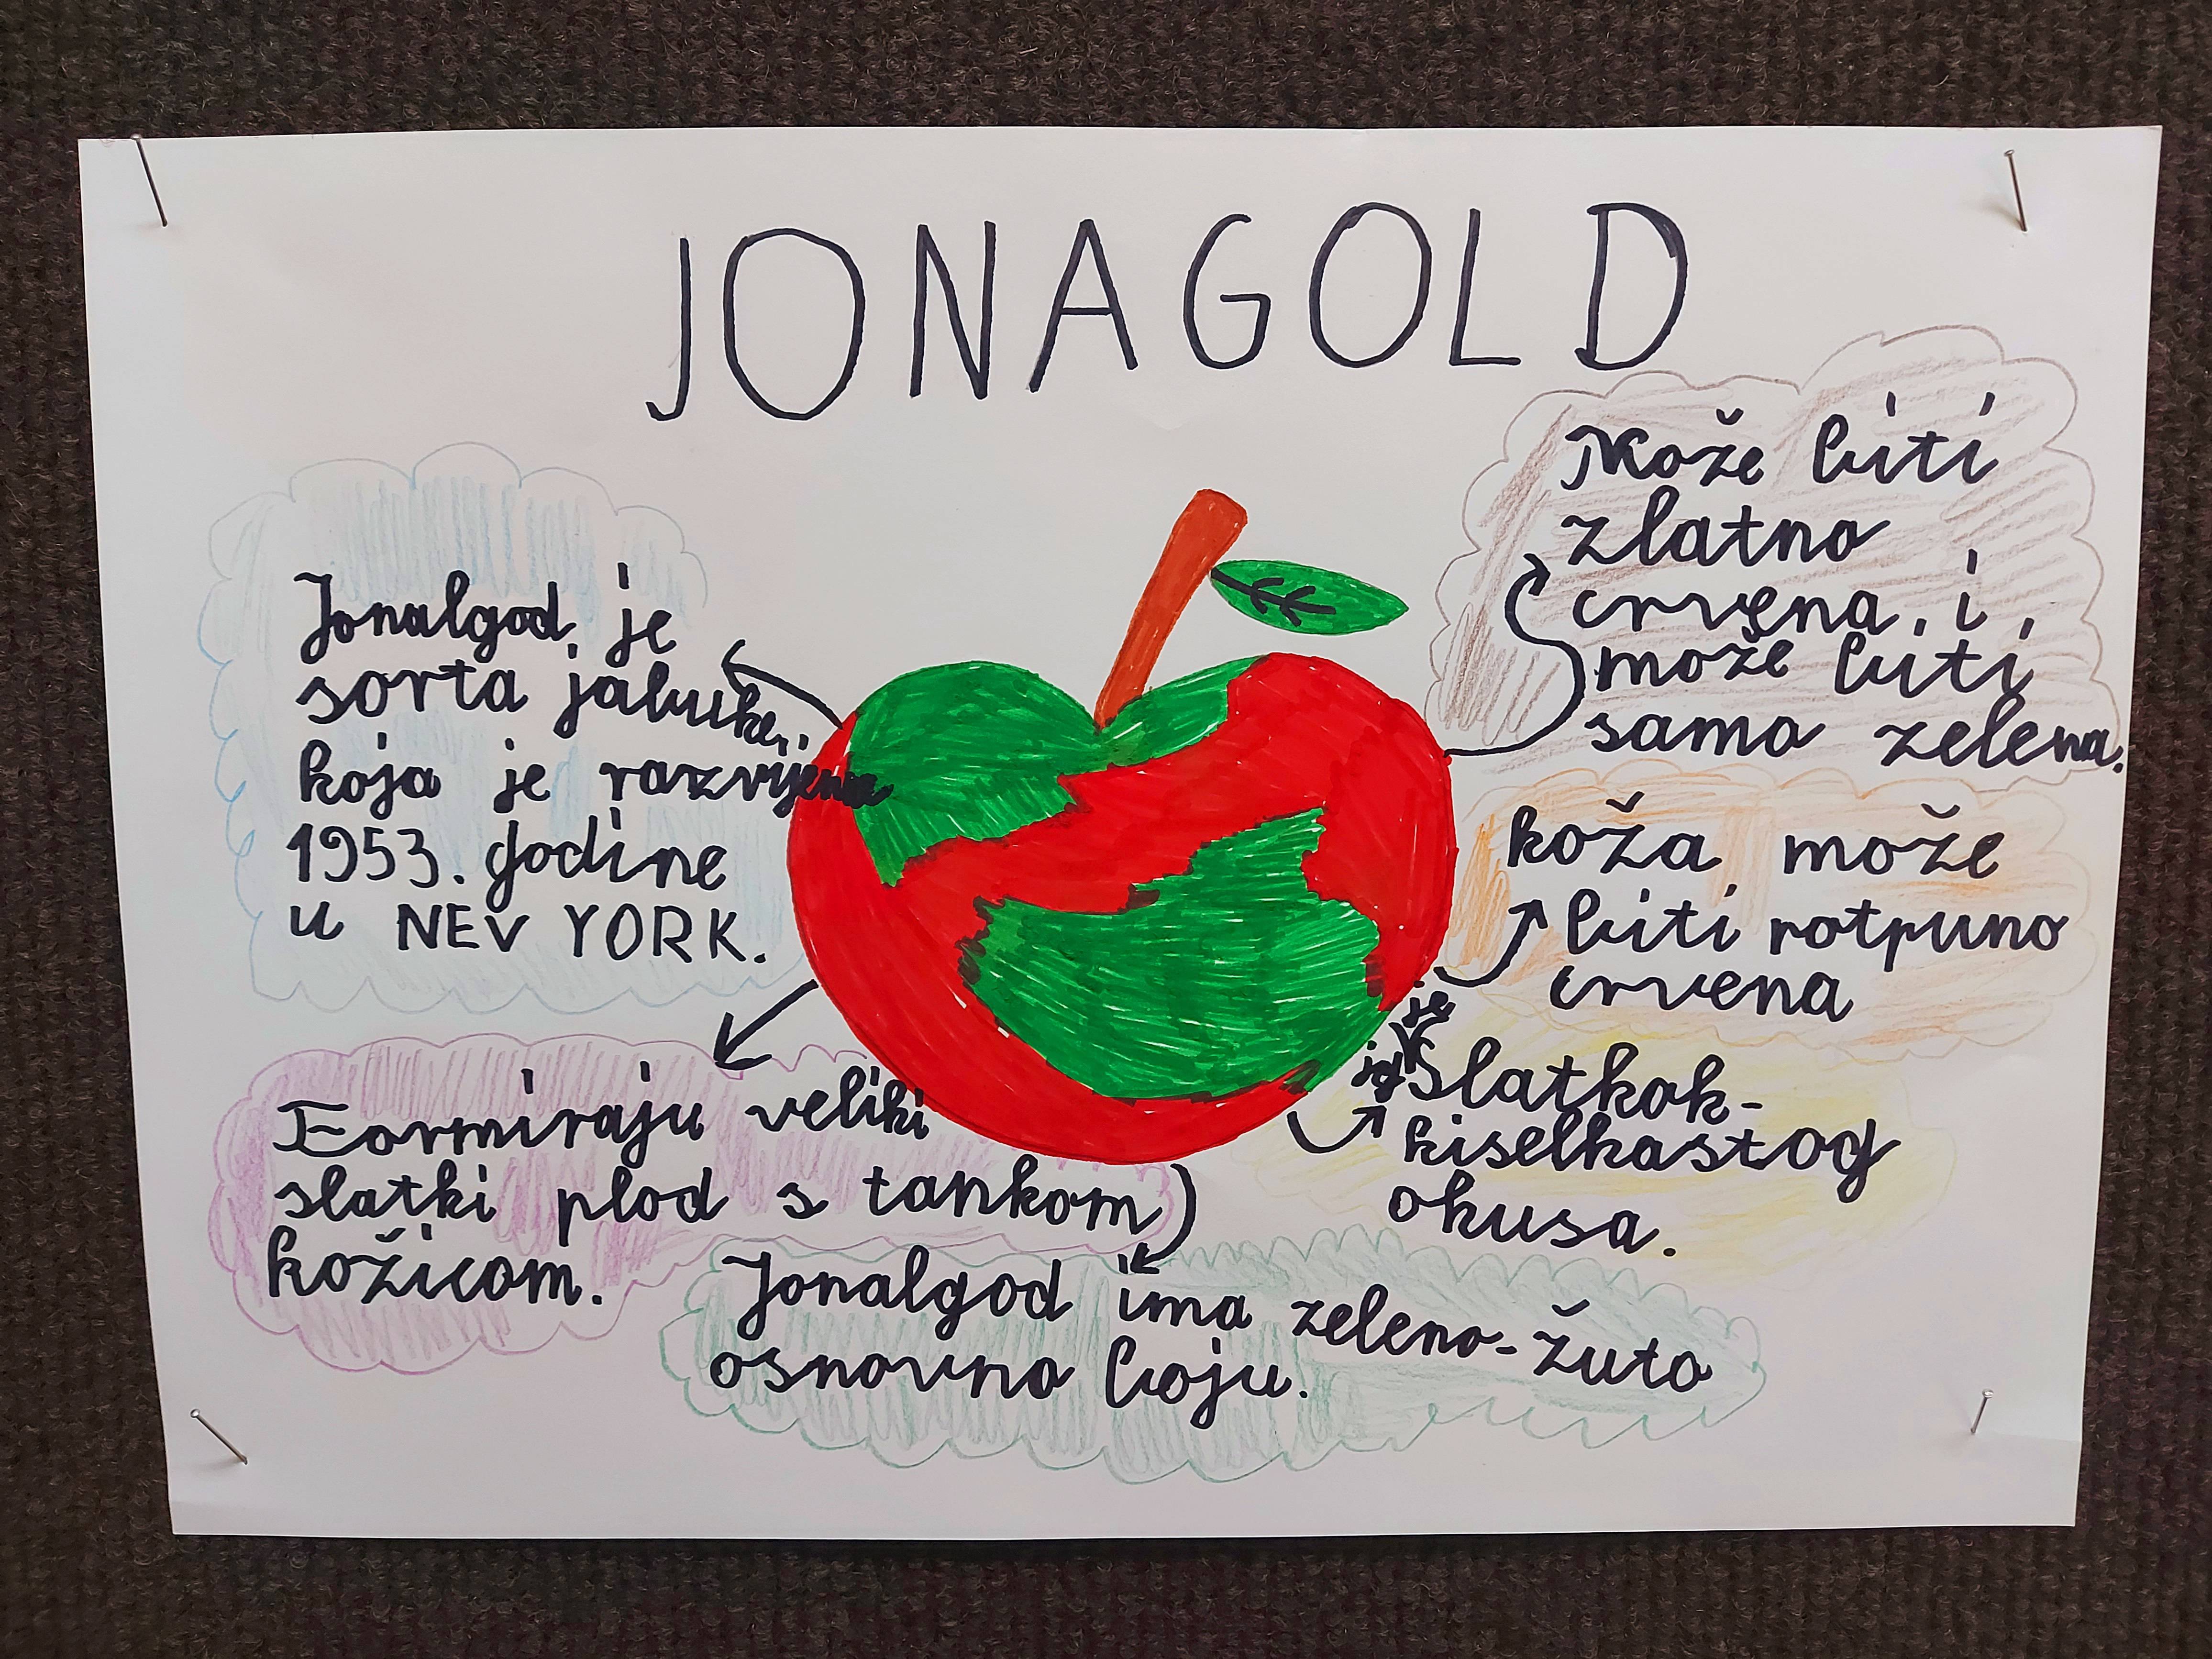 JONAGOLD
Jonalgod je
sorta jabuke,
koja je razvijena
1953. godine
u NEV YORK.
Formiraju veliki
slatki plod s tankom
kožicom.
Jonalgod ima zeleno-žuto
osnovno boju.
Može biti
zlatno
crvena, i
može biti
samo zelena.
koža može
biti potpuno
crvena
je
Slatkok-
kiselkastog
okusa.